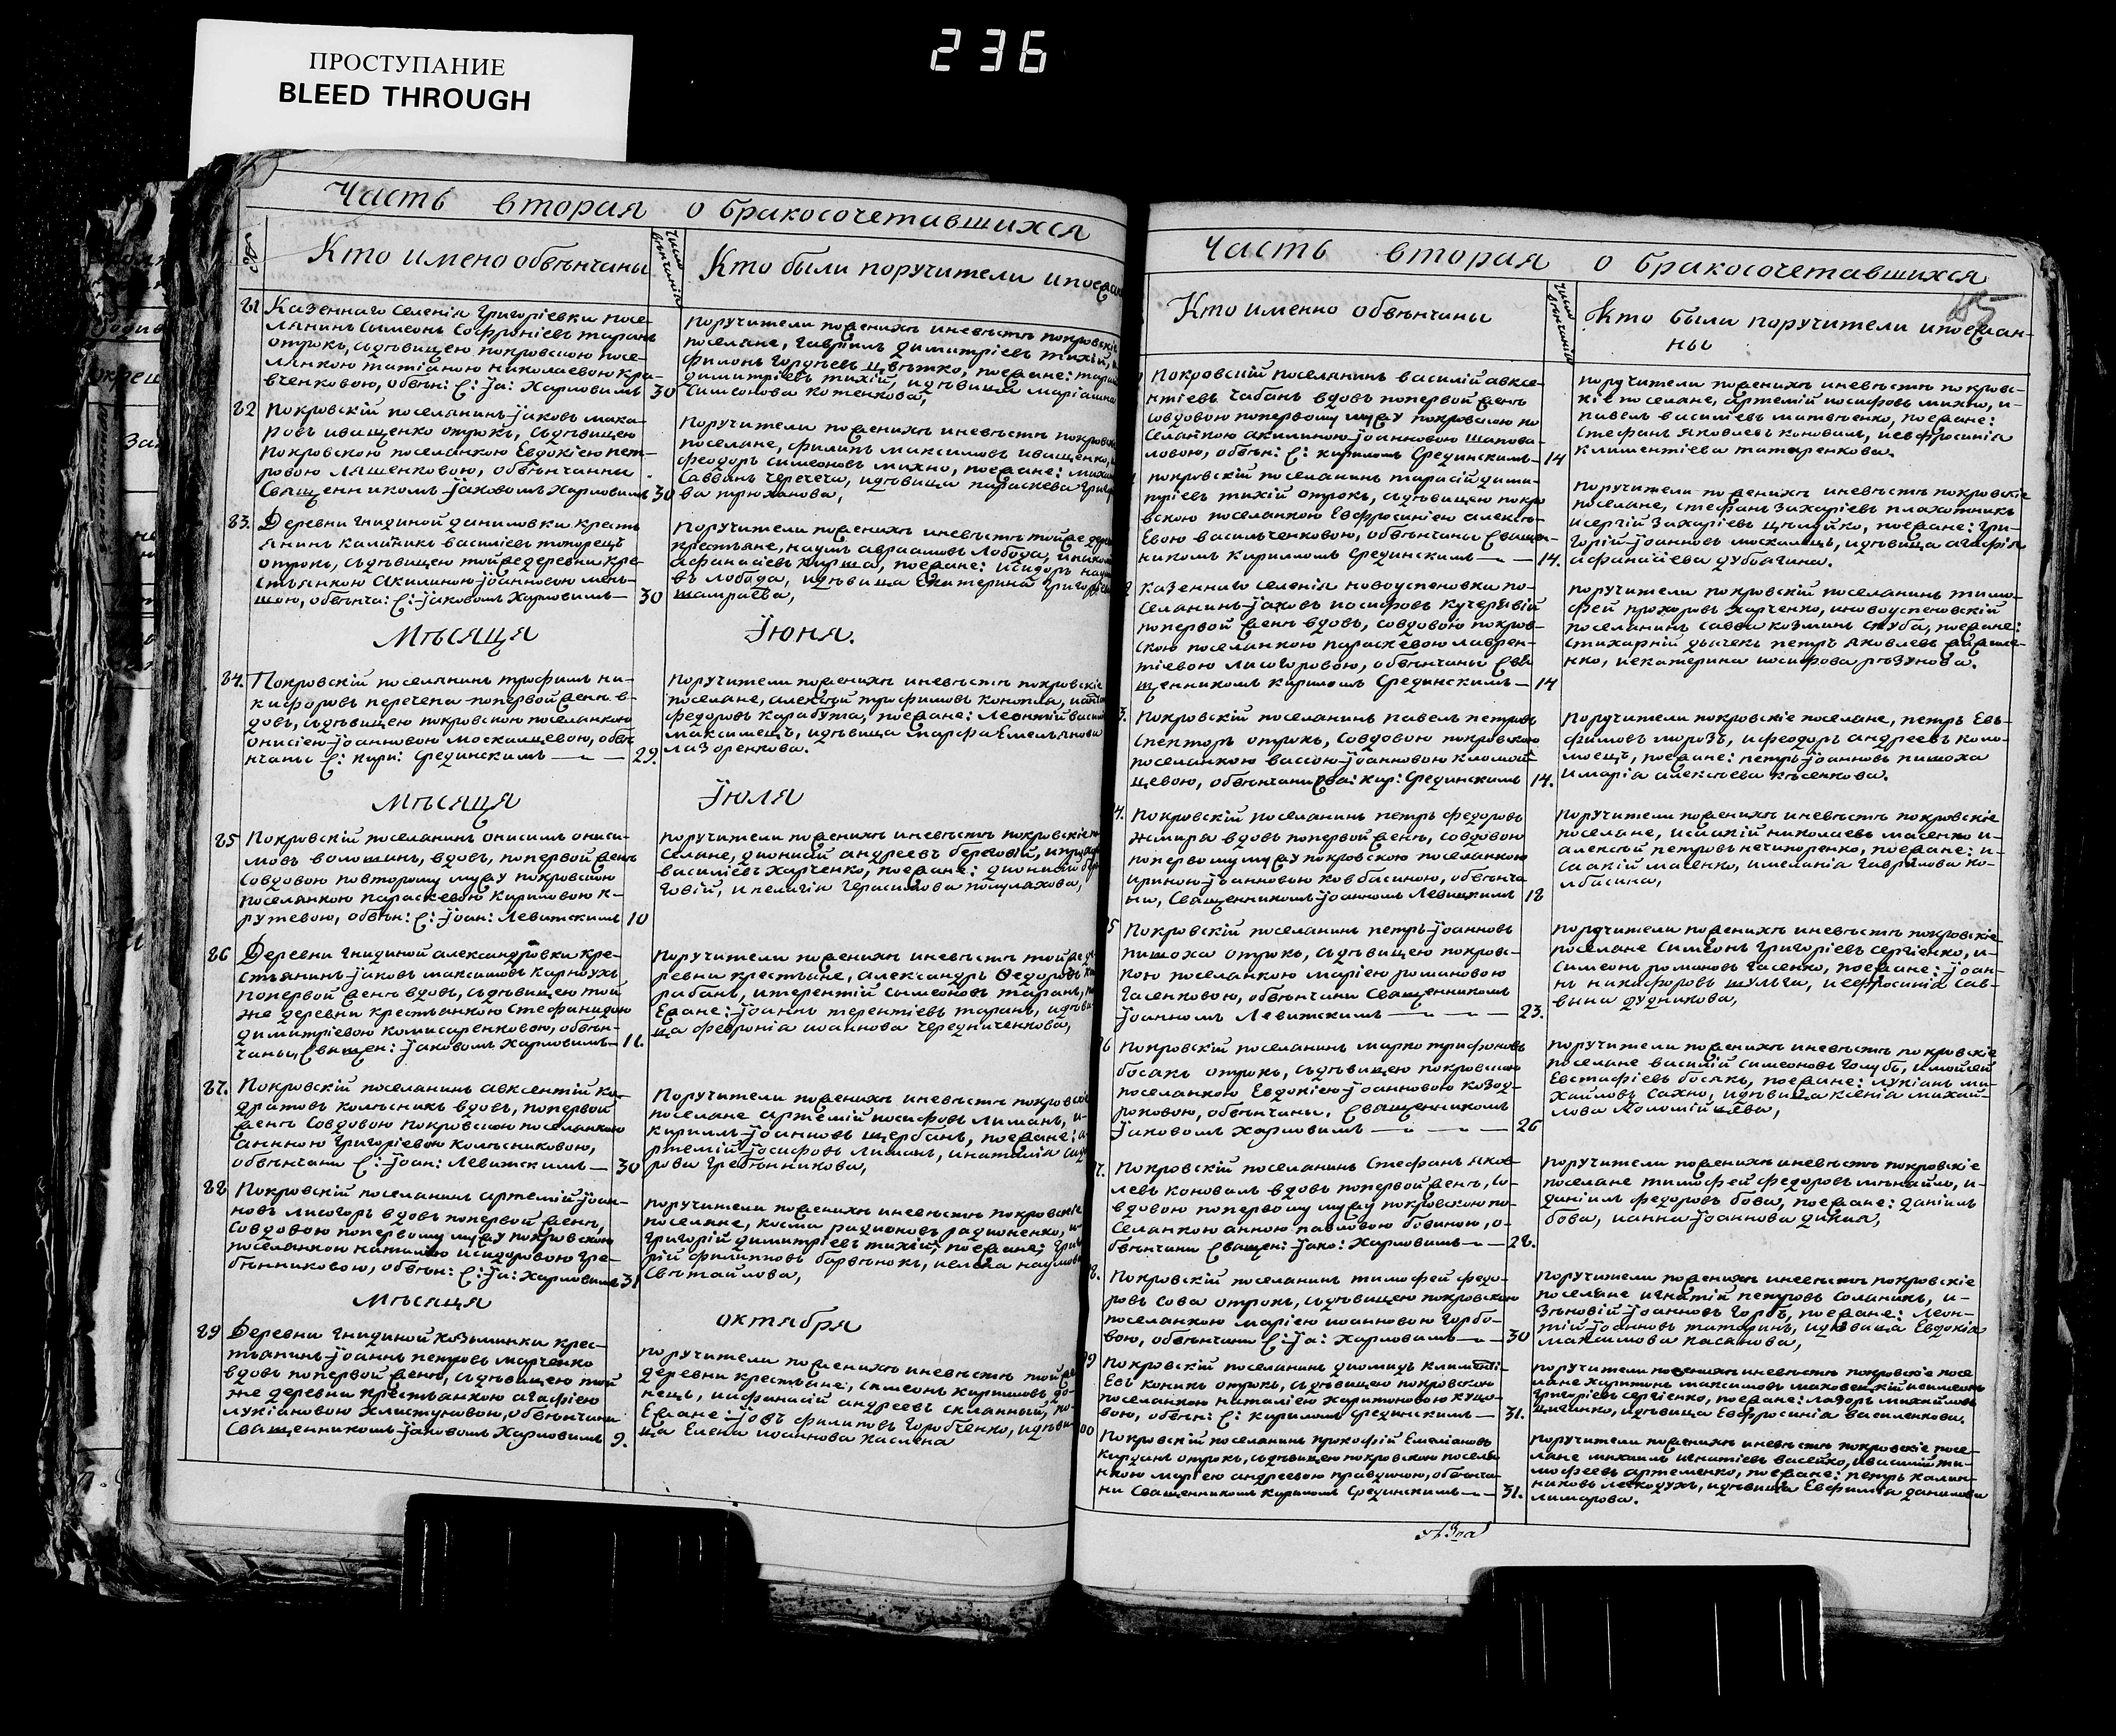 ПРОСТУПАНИЕ
BLEED THROUGH
236
Часть вторая о бракосочетавшихся
№
Кто имено обвѣнчаны
число вѣнчанія
Кто были поручители и поезжан
81 Казеннаго селенія Григоріевки посе-
лянинъ Сымеонъ Софроніевъ таранъ
отрокъ, сдѣвицею покровскою посе-
лянкою татіаною николаевою кра-
вченковою, обвѣн: С: Іа: Харловимъ 30
поручители поженихѣ иневѣстѣ покровскіе
поселане, Гавріилъ димитріевъ тихій,
филонъ Гордѣевъ цвѣтко, поезжане:
димитріевъ тихій, идѣвица маріанна
Симеонова котенкова,
82 покровскій поселанинъ Іаковъ мака-
ровъ иващенко отрокъ, сдѣвицею
покровскою поселанкою Евдокіею пет-
ровою Ляшенковою, обвѣнчанны
Священникомъ Іаковомъ Харловимъ 30
поручители поженихѣ иневѣстѣ покровскіе
поселане, филипъ максимовъ иващенко,
феодоръ симеоновъ михно, поезжане:
Саввинъ черечеча, идѣвица параскева
ва трюханова,
83. Деревни Гнидиной даниловки кресть
янинъ калиникъ василіевъ топорецъ
отрокъ, сдѣвицею тойжедеревни кре-
стьянкою Акилиною Іоанновою мень-
шою, обвѣнча: С: Іаковомъ Харловимъ 30
поручители поженихѣ иневѣстѣ тойже
крестьяне, наумъ авраамовъ Лобода,
афанасіевъ кирпа, поезжане: исидоръ
въ лобода, идѣвица Екатерина
шамраева,
Мѣсяца Іюня.
84. Покровскій поселянинъ трофимъ ни-
кифоровъ перечепа попервойженѣ в-
довъ, сдѣвицею покровскою поселанкою
онисіею Іоанновою москалцевою, обвѣ
нчаны С: кири: Срединскимъ 29.
поручители поженихѣ иневѣстѣ покровскіе
поселане, алексѣй трофимовъ конопла,
федоровъ карабута, поезжане: Леонтій
максимецъ, идѣвица марфа Емельянова
лазоренкова.
Мѣсяца Іюля
85 Покровскій поселанинъ онисимъ ониси-
мовъ волошинъ, вдовъ, попервойженѣ
Совдовою повторому мужу покровскою
поселянкою параскевою кириловою к-
рутевою, обвѣн: С: Іоан: Левитскимъ 10
поручители поженихѣ иневѣстѣ покровскіе
селане, діонисій андреевъ береговій,
василіевъ Харченко, поезжане: діонисій
говій, и пелагія Герасимова полулахова,
86 Деревни Гнидиной александровки кре-
стьянинъ Іаковъ максимовъ карноухъ
попервой женѣ вдовъ, сдѣвицею той
же деревни крестьянкою Стефанидою
димитріевою комисаренковою, обвѣн-
чаны, Священ: Іаковомъ Харловимъ
поручители поженихѣ иневѣстѣ тойже де-
ревни крестьяне, александръ Ѳедоровъ
рабанъ, итерентій Сымеоновъ таранъ,
Ежане: Іоаннъ терентіевъ таранъ,
ца февронія иоаннова чередниченкова,
87. Покровскій поселанинъ авксентій ко-
дратовъ колѣсникъ вдовъ, попервой
женѣ Совдовою покровскою поселанкою
анною григоріевою колѣсниковою,
обвѣнчани С: Іоан: Левитскимъ 30
поручители поженихѣ иневѣстѣ покровскіе
поселане артемій иосифовъ лиманъ, и-
кирилъ Іоанновъ щербакъ, поезжане: а-
ртемій Іосифовъ лиманъ, инаталіа
рова гребѣнникова,
88 покровскій поселанинъ артемій Іоан-
новъ лисогоръ вдовъ попервой женѣ,
Совдовою попервому мужу покровскою
поселянкою наталіею исидоровою гре-
бѣнниковою, обвѣн: С: Іа: Харловимъ 31
поручители поженихѣ иневѣстѣ покровскіе
поселяне, коста радионовъ радионенко, и-
григорій димитріевъ тихій, поезжане:
рій филипповъ борвѣнокъ, иелена наумова
Свѣтайлова,
Мѣсяца октября
89 Деревни гнидиной козьминки крес-
тьянинъ Іоаннъ петровъ марченко
вдовъ попервой женѣ, сдѣвицею той
же деревни крестьянкою агафіею
лукіановою хлистуновою, обвѣнчани
Священникомъ Іаковомъ Харловимъ 9.
поручители поженихѣ иневѣстѣ тойже
деревни крестьяне, Симеонъ харитоновъ до-
нецъ, иафанасій андреевъ скланный, по-
Езжане: Іовъ филиповъ горобченко, идѣви
ца Елена иоаннова каслена
Часть вторая о бракосочетавшихся
185
Кто именно обвѣнчаны
число вѣнчанія
Кто были поручители и поезжан-
ны
Покровскій поселанинъ василій авксе-
нтіевъ чабанъ вдовъ попервой женѣ
Совдовою попервому мужу покровскою по
селанкою акилиною Іоанновою шапова-
ловою, обвѣн: С: кириломъ Срединскимъ 14
поручители поженихѣ иневѣстѣ покровс-
кіе поселане, артемій иосифовъ михно, и-
павелъ василіевъ матвѣенко, поезжане:
Стефанъ яковлевъ коновалъ, иевфросинія
климентіева татаренкова.
покровскій поселанинъ тарасій дими-
тріевъ тихій отрокъ, сдѣвицею покро
вскою поселанкою Евфросиніею алексѣ-
Евою васильченковою, обвѣнчаны Священ-
никомъ кириломъ Срединскимъ 14.
поручители поженихѣ иневѣстѣ покровскіе
поселане, стефанъ захаріевъ плахотникъ
исергій захаріевъ цѣлуйко, поезжане: гри-
горій Іоанновъ москалецъ, идѣвица агафія
афанасіева дубовгина.
2 казеннаго селенія новоуспеновки по-
селанинъ Іаковъ иосифовъ кучерявій
попервой женѣ вдовъ, совдовою покров-
скою поселанкою параскевою лаврен-
тіевою лисогоровою, обвѣнчаны Свя
щенникомъ кириломъ Срединскимъ 14
поручители покровскій поселанинъ тимо-
фей прохоровъ харченко, иновоуспеновскій
поселанинъ савва козминъ скуба, поезжане:
стихарній дьячекъ петръ яковлевъ
нко, иекатерина иосифова рѣзунова.
3. Покровскій поселанинъ павелъ петровъ
Спекторъ отрокъ, Совдовою покровскою
поселанкою вассою Іоанновою
цевою, обвѣнчани Сва: кир: Срединскимъ 14.
поручители покровскіе поселане, петръ Евѳ-
фимовъ морозъ, ифеодоръ андреевъ коло-
моецъ, поезжане: петръ Іоанновъ пишоха
имаріа алексѣева кѣсенкова.
4. Покровскій поселанинъ петръ федоровъ
жмира вдовъ попервой женѣ, совдовою
попервому мужу покровскою поселанкою
ириною Іоанновою ковбасиною, обвѣнча
ни, Священникомъ Іоанномъ Левицкимъ 18
поручители поженихѣ иневѣстѣ покровскіе
поселане, исаакій николаевъ масенко и-
алексѣй петровъ нечипоренко, поезжане: и-
саакій масенко, имеланіа гаврилова ко-
лбасина,
5 Покровскій поселанинъ петръ Іоанновъ
пишоха отрокъ, сдѣвицею покровс-
кою поселанкою маріею романовою
гасенковою, обвѣнчани Священникомъ
Іоанномъ Левитскимъ 23.
поручители поженихѣ иневѣстѣ покровскіе
поселане симеонъ григоріевъ сергіенко, и-
симеонъ романовъ гасенко, поезжане: Іоан-
нъ никифоровъ шульга, иефросиніа сав-
вына дудникова,
6 Покровскій поселанинъ марко трифоновъ
босакъ отрокъ, сдѣвицею покровскою
поселанкою Евдокіею Іоанновою козод-
роковою, обвѣнчаны, Священникомъ
Іаковомъ Харловимъ 26
поручители поженихѣ иневѣстѣ покровскіе
поселане василій симеоновъ голубъ, имойсей
Евстафіевъ босакъ, поезжане: лукіанъ ми-
хайловъ сахно, идѣвица ксенія михай-
лова коломійцева,
7. Покровскій поселанинъ Стефанъ яков-
левъ коновалъ вдовъ попервой женѣ, со-
вдовою попервому мужу покровскою по-
селанкою анною павловою бовиною, о-
бвѣнчани Священ: Іако: Харловимъ 28.
поручители поженихѣ иневѣстѣ покровскіе
поселане тимофей федоровъ мѣнайло, и-
даніилъ федоровъ бова, поезжане: даніилъ
бова, ианна Іоаннова дикая,
8. Покровскій поселанинъ тимофей федо-
ровъ сова отрокъ, сдѣвицею покровскою
поселанкою маріею иоанновою горбо-
вою, обвѣнчани С: Іа: Харловимъ 30
поручители поженихѣ иневѣстѣ покровскіе
поселане игнатій петровъ соланикъ, и-
зѣновій Іоанновъ горбъ, поезжане: леон-
тій Іоанновъ татаринъ, идѣвица Евдокіа
максимова касанова,
99 Покровскій поселанинъ диомидъ климаті-
Евъ коникъ отрокъ, сдѣвицею покровскою
поселанкою наталіею харитоновою куцо-
вою, обвѣн: С: кириломъ Срединскимъ 31.
поручители поженихѣ иневѣстѣ покровскіе посе
лане харитонъ максимовъ маховецкій исимеонъ
григоріевъ сергіенко, поезжане: лазоръ михайловъ
щиченко, идѣвица Евфросиніа василенкова.
00 Покровскій поселанинъ прокофій Емеліановъ
кирданъ отрокъ, сдѣвицею покровскою посела
нкою маріею андреевою правдиною, обвѣнча-
ни Священникомъ кириломъ Срединскимъ 31.
поручители поженихѣ иневѣстѣ покровскіе посе-
лане михаилъ игнатіевъ васецко, ивасилій ти-
мофеевъ артеменко, поезжане: петръ калин-
никовъ легкодухъ, идѣвица Евфиміа данилова
лимарова.